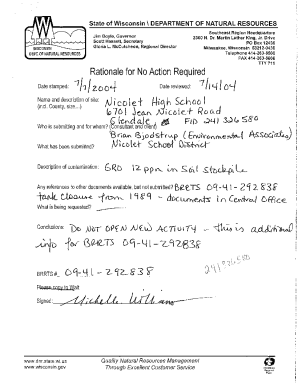 State of Wisconsin \ DEPARTMENT OF NATURAL RESOURCES
Jim Doyle, Governor
Scott Hassett, Secretary
Gloria L. McCutcheon, Regional Director
Southeast Region Headquarters
2300 N. Dr. Martin Luther King, Jr. Drive
PO Box 12436
Milwaukee, Wisconsin 53212-0436
Telephone 414-263-8500
FAX 414-263-8606
TTY 711
WISCONSIN
DEPT. OF NATURAL RESOURCES
Rationale for No Action Required
Date stamped: 7/7/2004 Date reviewed: 7/14/04
Name and description of site: Nicolet High School
(incl. County, size...) 6701 Jean Nicolet Road
Glendale, FID 241326580
Who is submitting and for whom? (Consultant and client)
Brian Bjodstrup (Environmental Associates)
What has been submitted? Nicolet School District
Description of contamination: GRO 12 ppm in Soil Stockpile
Any references to other documents available, but not submitted? BRRTS 09-41-292838
tank closure from 1989 - documents in Central Office
What is being requested?
Conclusions: DO NOT OPEN NEW ACTIVITY - this is additional
info for BRRTS 09-41-292838
BRRTS# 09-41-292838
241326580
Please copy to Walt
Signed: Michelle Williams
www.dnr.state.wi.us
www.wisconsin.gov
Quality Natural Resources Management
Through Excellent Customer Service